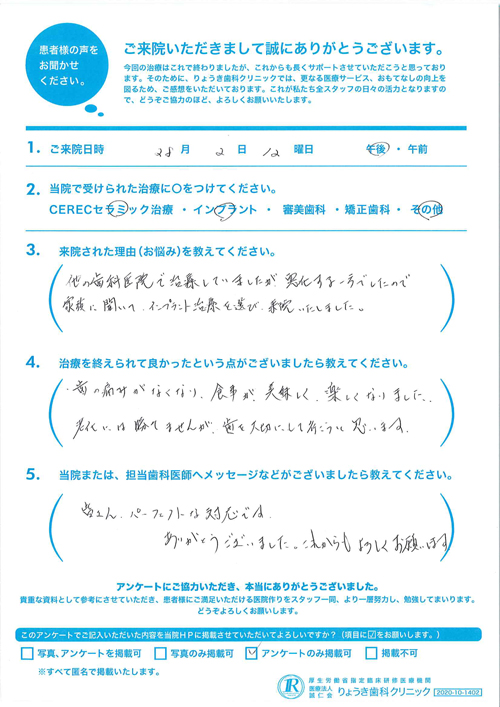 患者様の声を
お聞かせ
ください。
ご来院いただきまして誠にありがとうございます。
今回の治療はこれで終わりましたが、これからも長くサポートさせていただこうと思っておりま
す。そのために、りょうき歯科クリニックでは、更なる医療サービス、おもてなしの向上を
図るため、ご感想をいただいております。これが私たち全スタッフの日々の活力となりますの
で、どうぞご協力のほど、よろしくお願いいたします。
1. ご来院日時 28 月 2 日 12 曜日 午後 ・ 午前
2. 当院で受けられた治療に○をつけてください。
CERECセラミック治療 ・ インプラント ・ 審美歯科 ・ 矯正歯科 ・ その他
3. 来院された理由（お悩み）を教えてください。
他の歯科医院で治療していましたが 悪化する一方でしたので
家族に聞いて、インプラント治療を選び 来院いたしました。
4. 治療を終えられて良かったという点がございましたら教えてください。
・歯の痛みがなくなり、食事が、美味しく、楽しくなりました。
老化には勝てませんが、歯を大切にして行こうと思います。
5. 当院または、担当歯科医師へメッセージなどがございましたら教えてください。
皆さん、パーフェクトな対応です。
ありがとうございました。これからもよろしくお願いします
アンケートにご協力いただき、本当にありがとうございました。
貴重な資料として参考にさせていただき、患者様にご満足いただける医院作りをスタッフ一同、より一層努力し、勉強してまいります。
どうぞよろしくお願いします。
このアンケートでご記入いただいた内容を当院HPに掲載させていただいてよろしいですか？（項目に☑をお願いします。）
□ 写真、アンケートを掲載可 □ 写真のみ掲載可 ☑ アンケートのみ掲載可 □ 掲載不可
※すべて匿名で掲載いたします。
厚生労働省指定臨床研修医療機関
医療法人 誠仁会 りょうき歯科クリニック 2020-10-1402